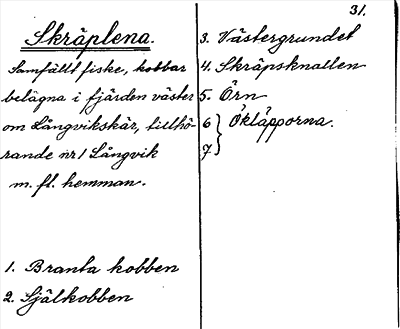 31.
Skräplena.
Samfällt fiske, kobbar
belägna i fjärden väster
om Långvikskär, tillhö-
rande nr 1 Långvik
m. fl. hemman.
1. Branta kobben
2. Själkobben
3. Västergrundet
4. Skräpsknallen
5. Örn
6 } Ökläpparna.
7